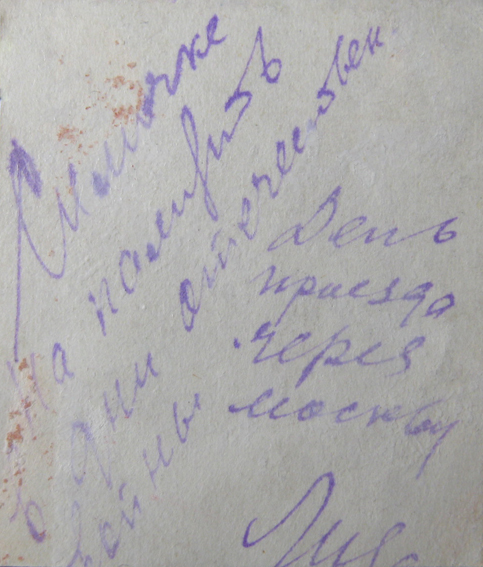 на память
в дни отечествен.
войны
День
приезда
через
москву